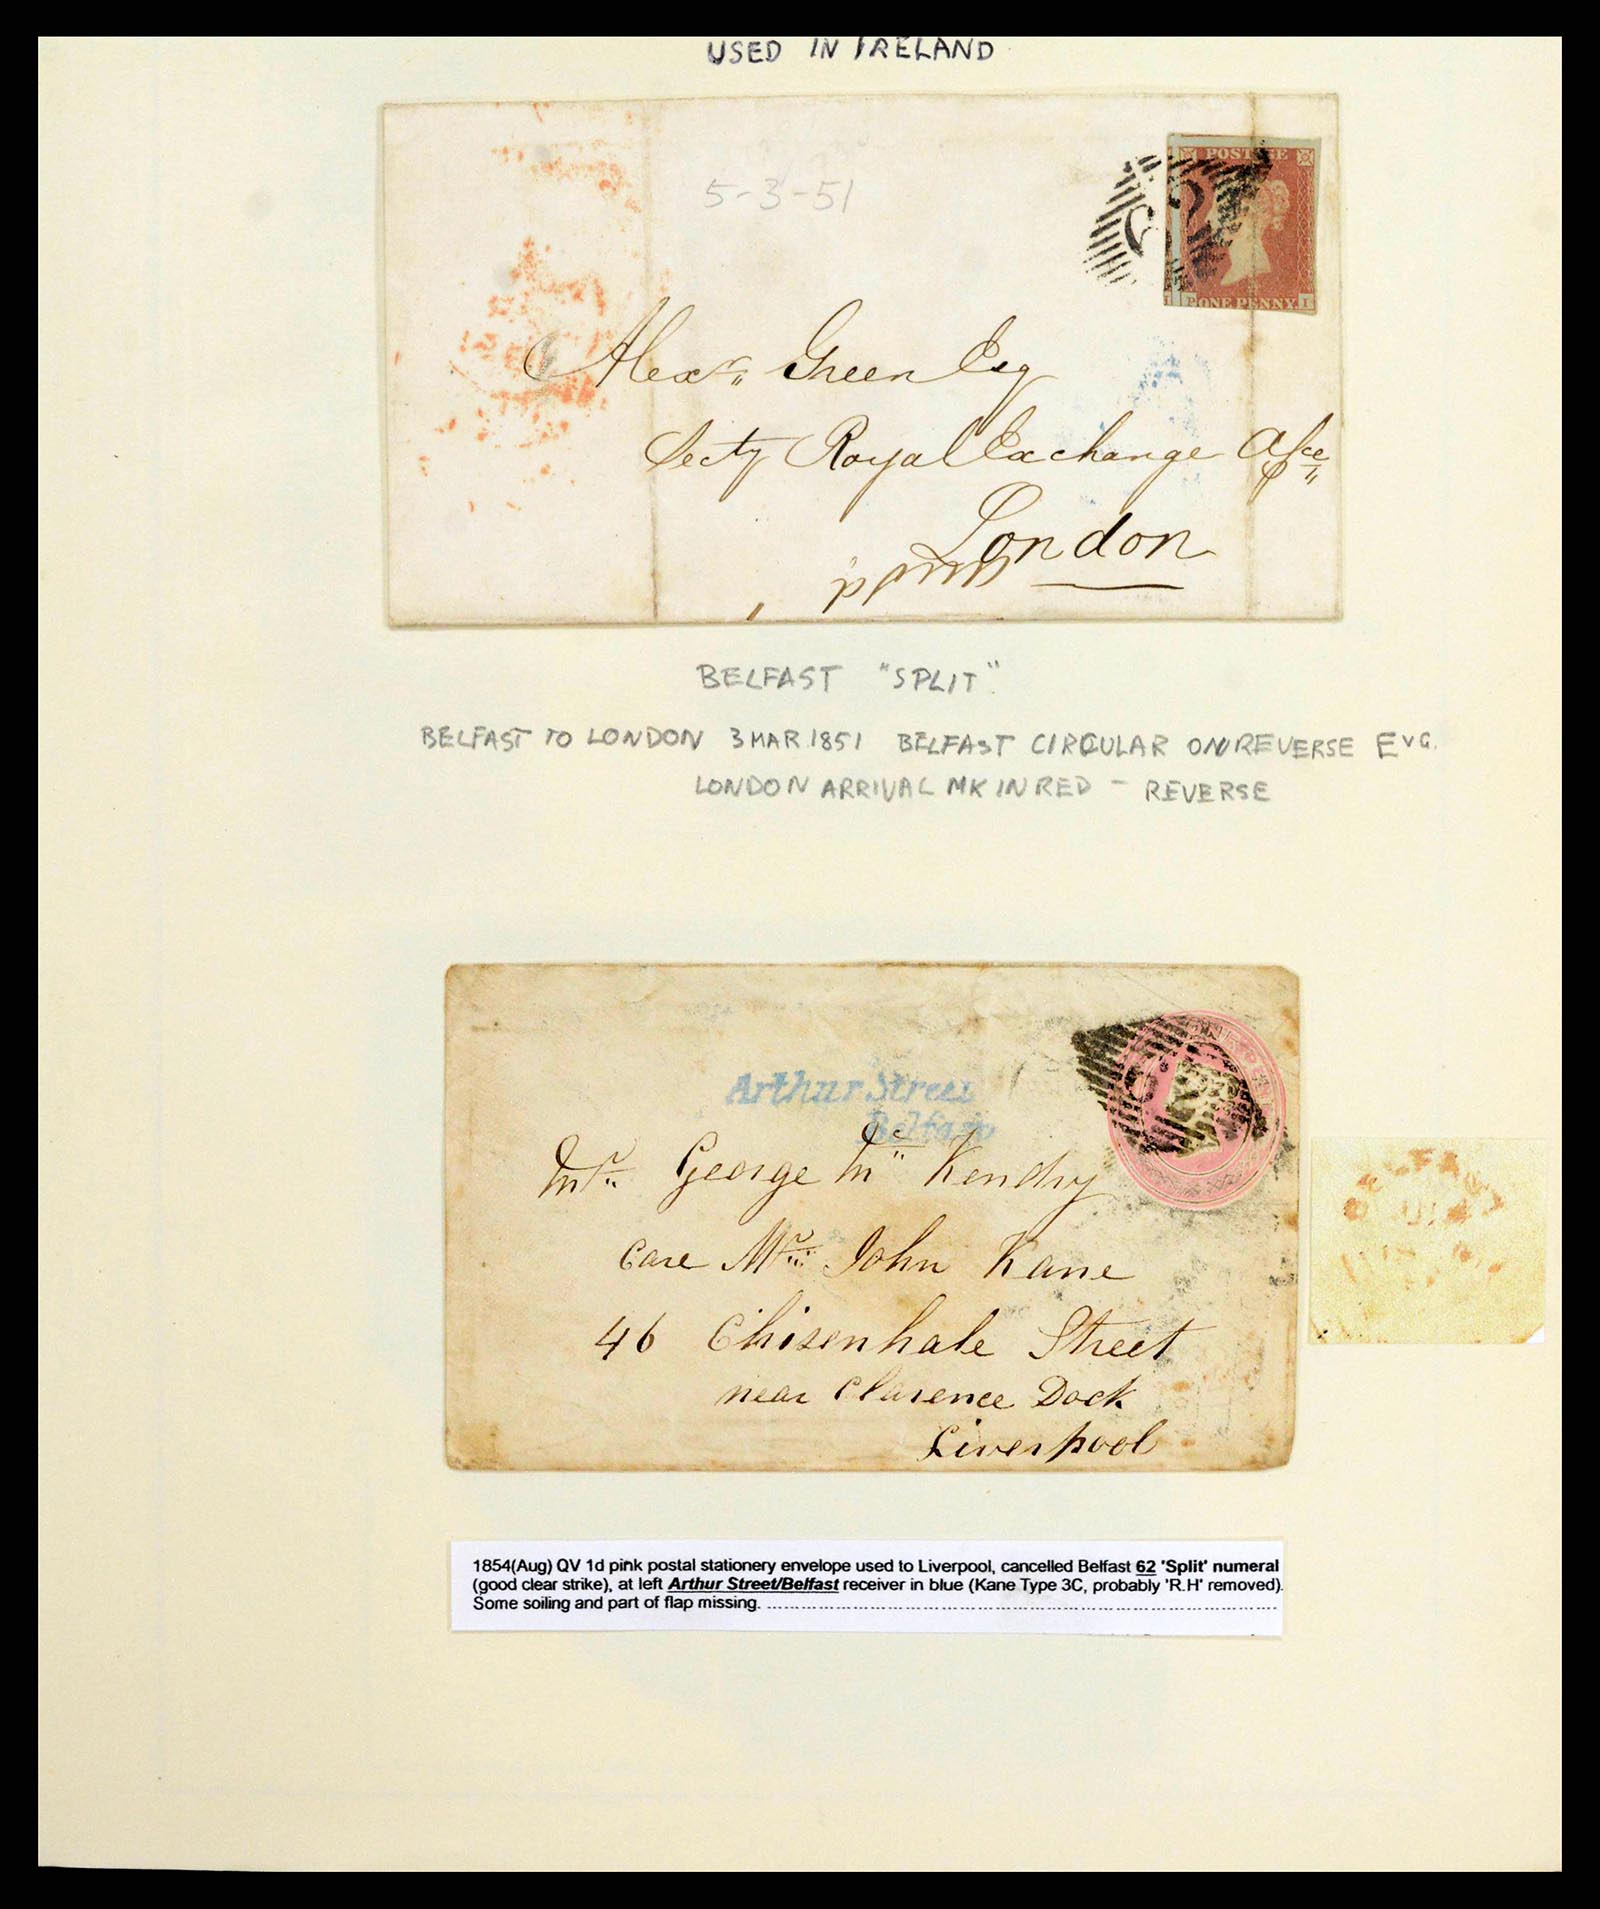 USED IN IRELAND
5-3-51
POSTAGE
P ONE PENNY. I
Alexr. Green Esq
Secty Royal Exchange Asce
London
BELFAST "SPLIT".
BELFAST TO LONDON 3 MAR. 1851 BELFAST CIRCULAR ON REVERSE EVG.
LONDON ARRIVAL MK IN RED - REVERSE
Arthur Street
Belfast
Mr. George Mc Kendry
Care Mr. John Kane
46 Chisenhale Street
near Clarence Dock
Liverpool
BELFAST
1854(Aug) QV 1d pink postal stationery envelope used to Liverpool, cancelled Belfast 62 'Split' numeral
(good clear strike), at left Arthur Street/Belfast receiver in blue (Kane Type 3C, probably 'R.H' removed).
Some soiling and part of flap missing.